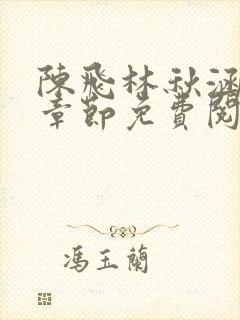 陳飛林秋涵
章節免費閱
馮玉蘭